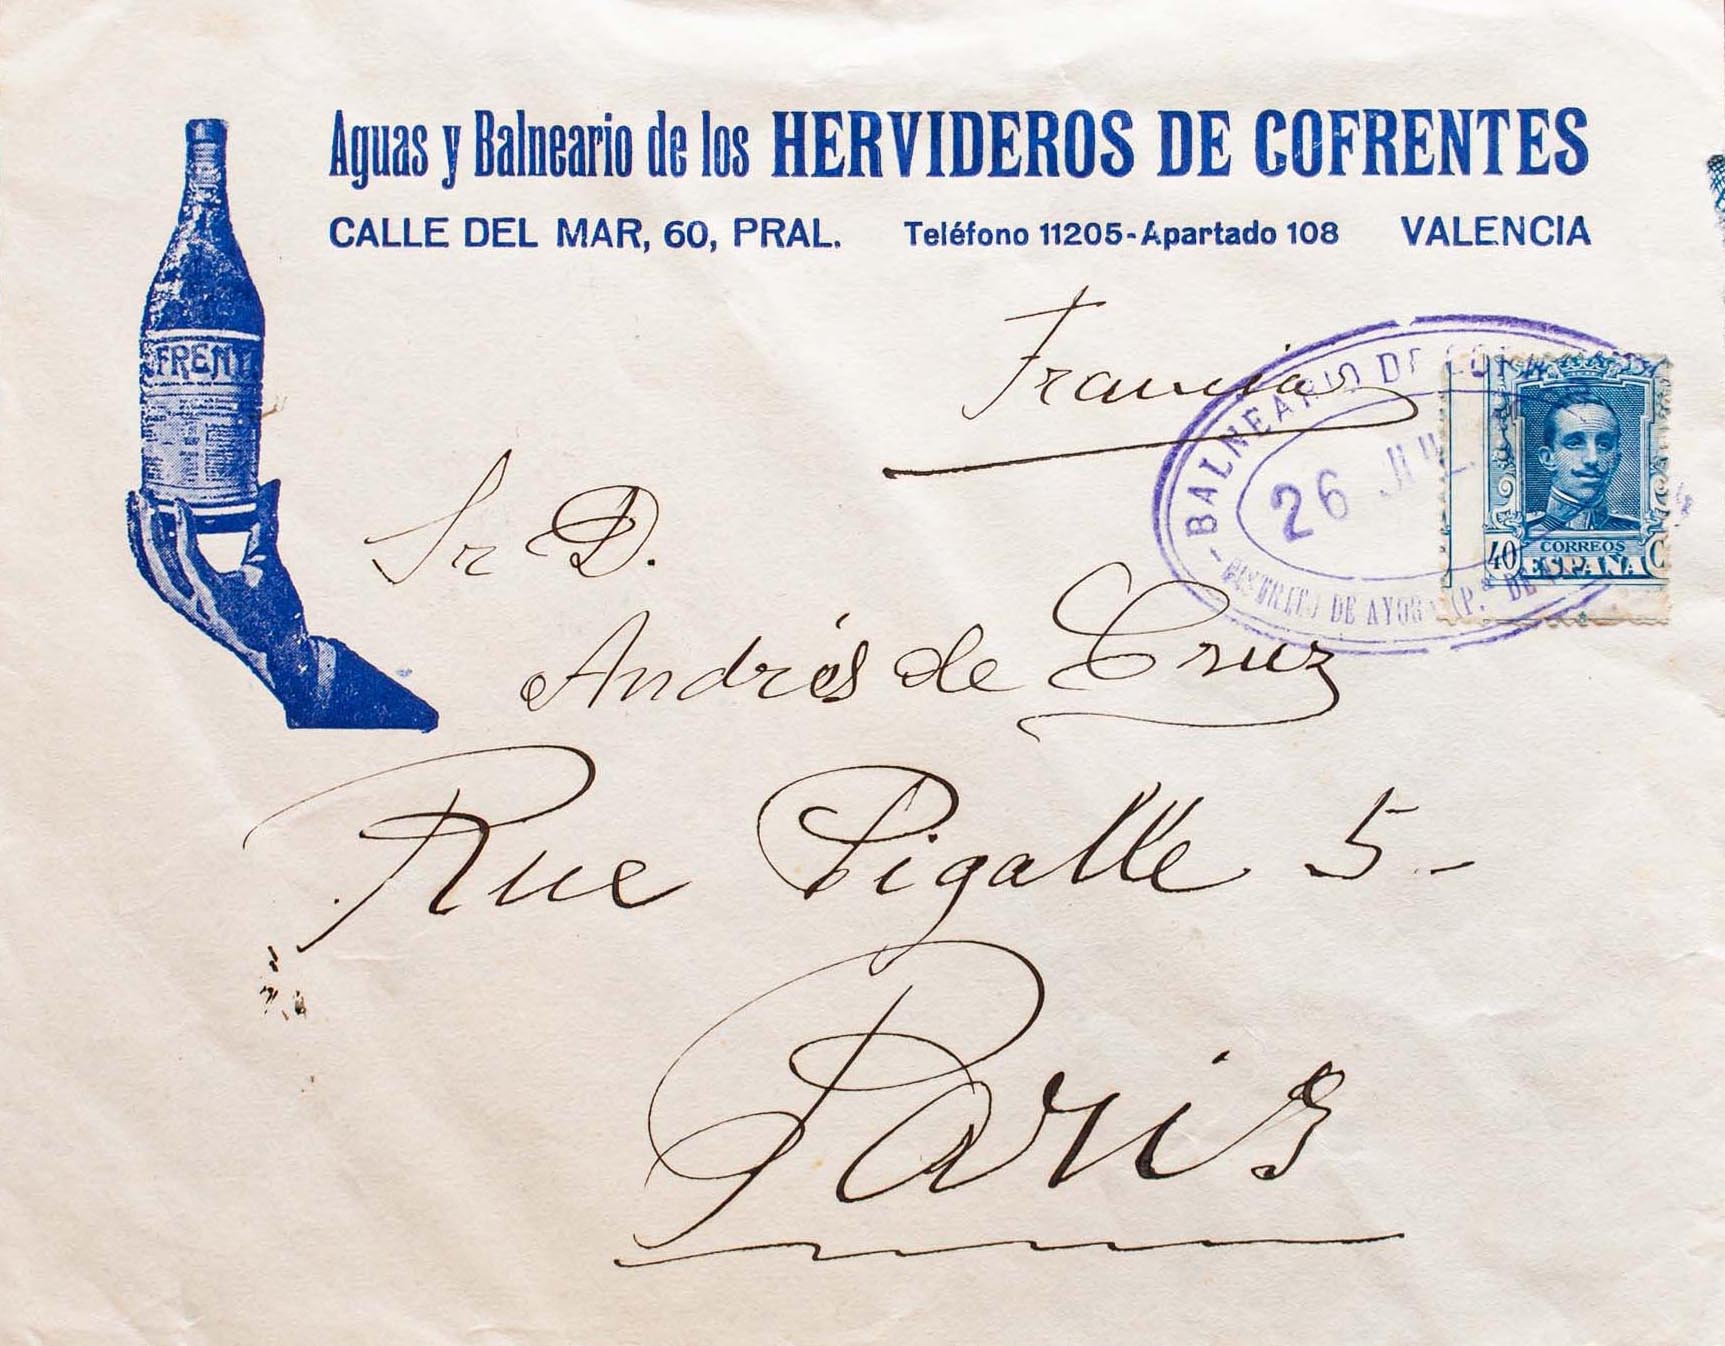 Aguas y Balneario de los HERVIDEROS DE COFRENTES
CALLE DEL MAR, 60, PRAL. Teléfono 11205-Apartado 108 VALENCIA
FRENT
Francia
BALNEARIO DE
26
DE AYORA (P. DE
40 CORREOS C
ESPAÑA
Sr D.
Andrés de Cruz
Rue Pigalle 5-
Paris